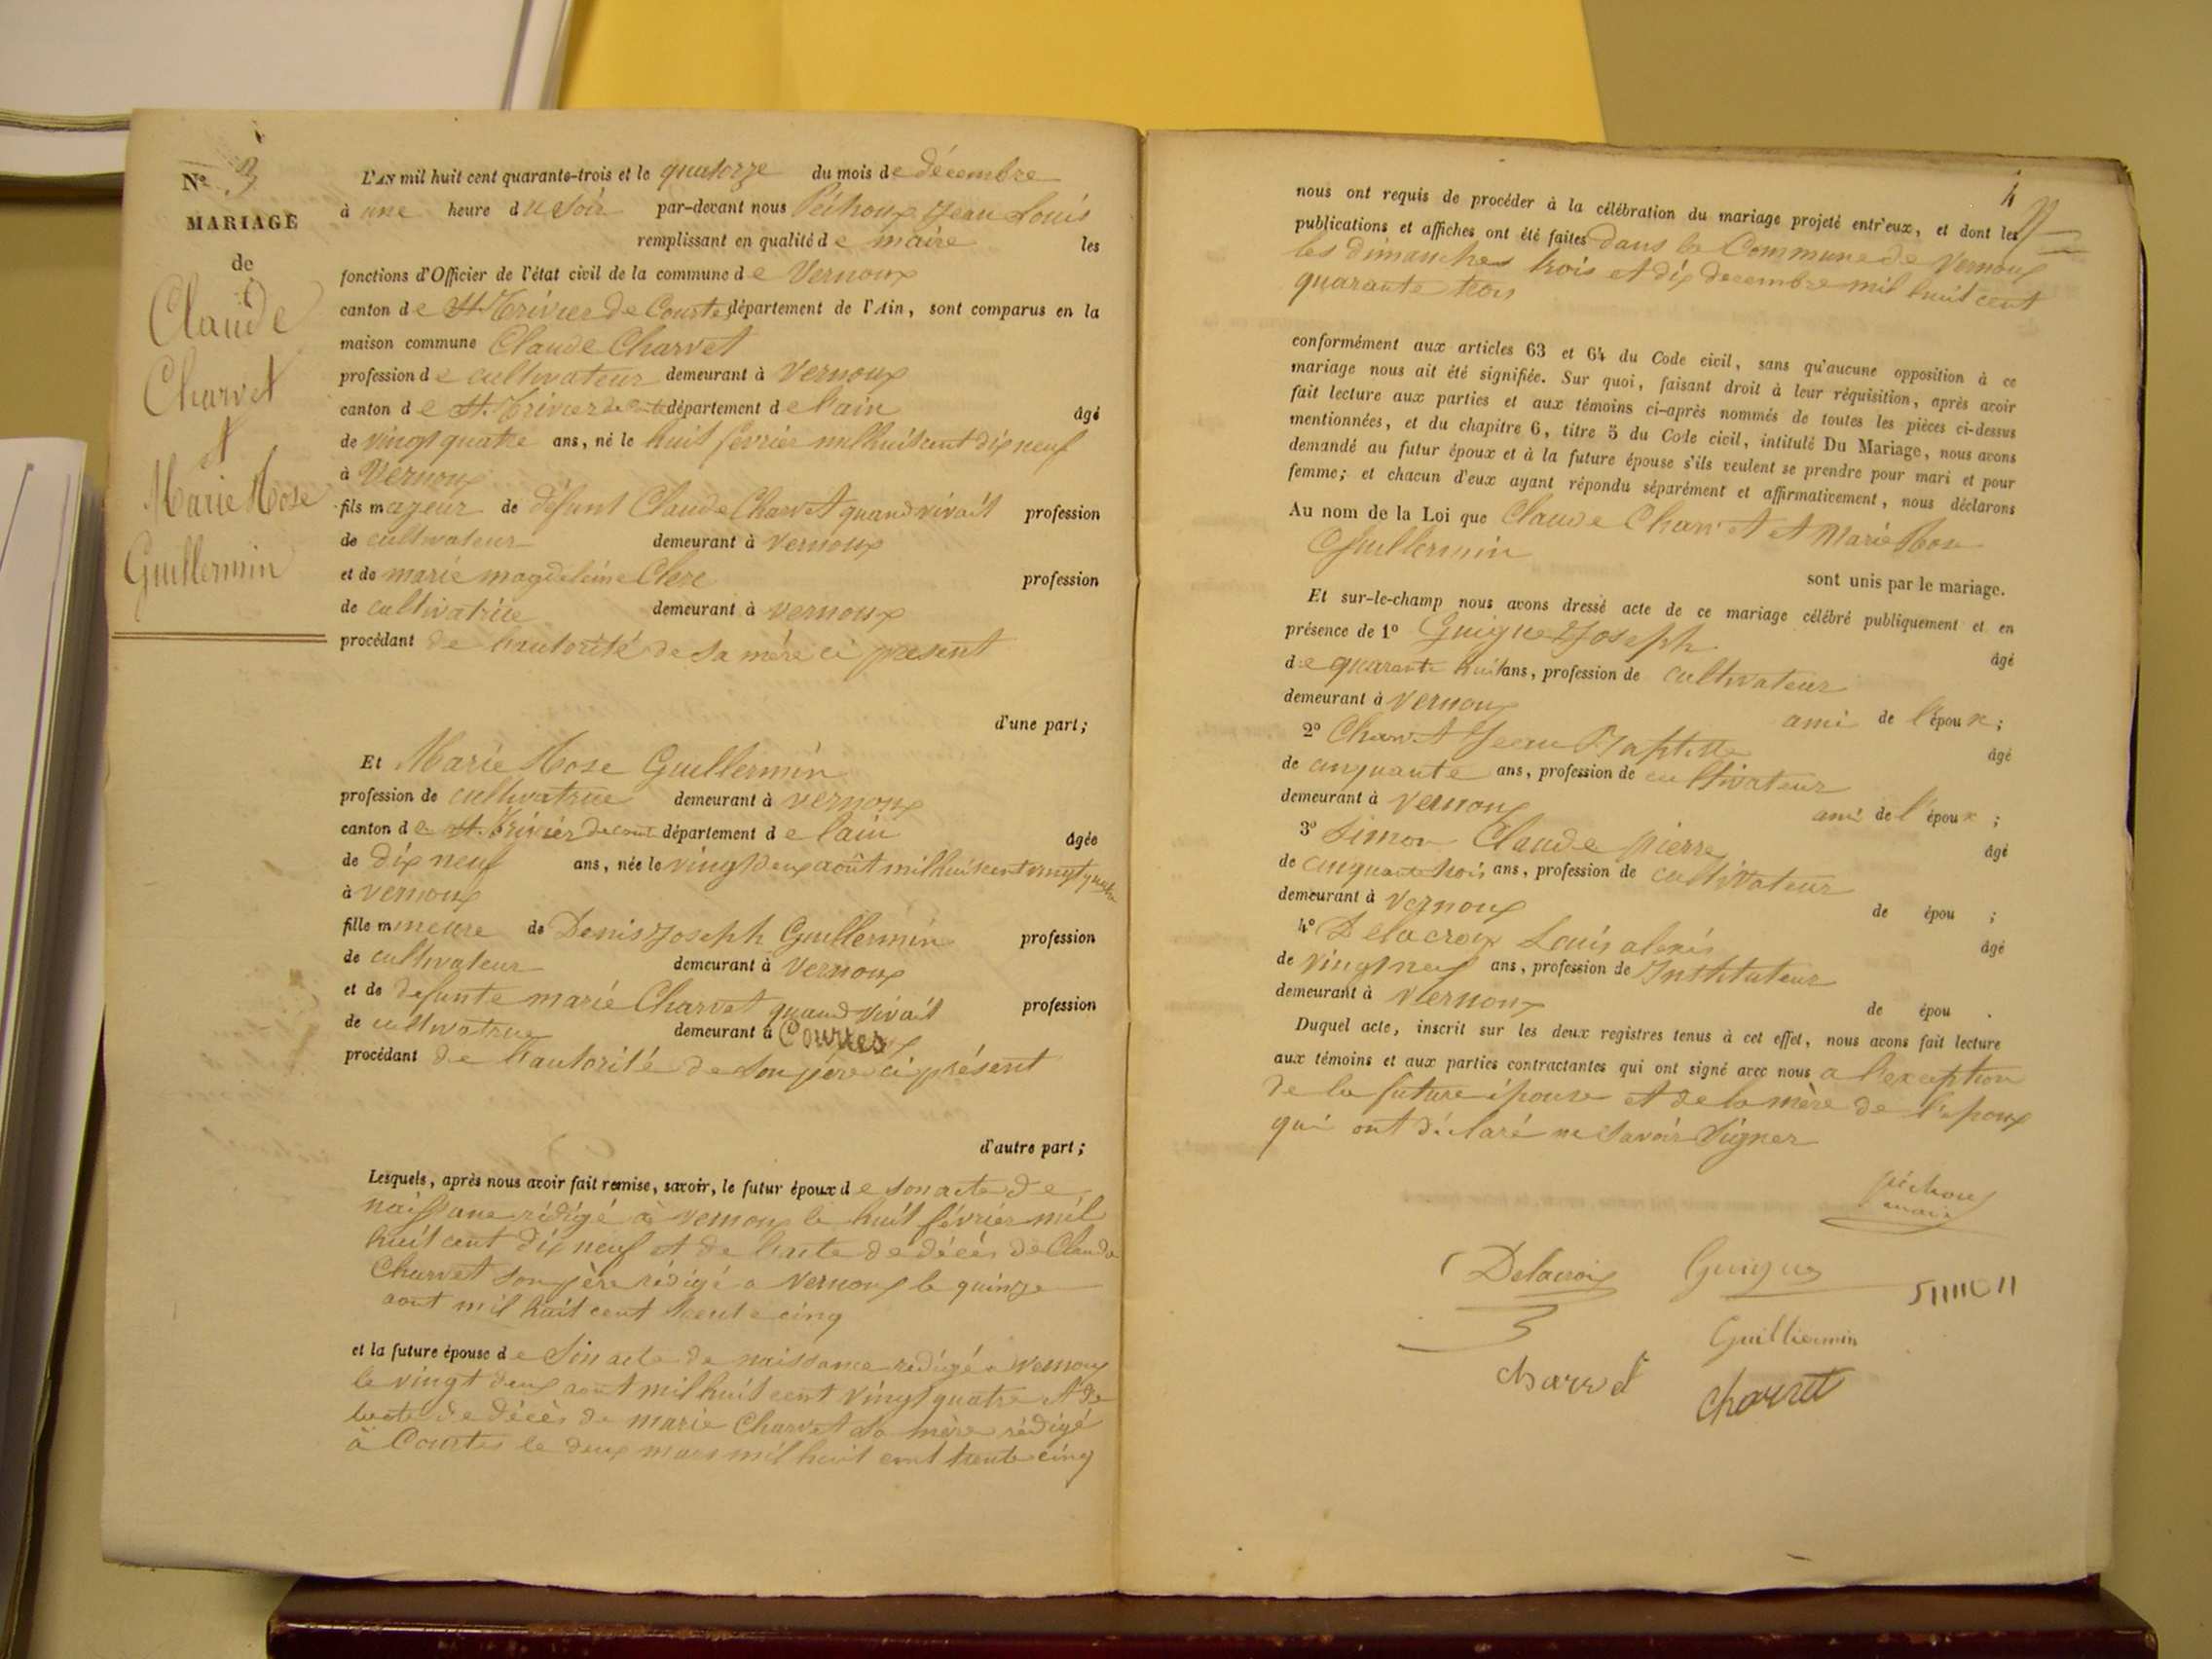 Nº 3
MARIAGE
de
Claude
Charvet
et
Marie Rose
Guillermin
L'AN mil huit cent quarante-trois et le quatorze du mois de décembre
à une heure du soir par-devant nous Péchoux Jean Louis
remplissant en qualité de maire les
fonctions d'Officier de l'état civil de la commune de Vernoux
canton de St. Trivier de Courtes département de l'Ain, sont comparus en la
maison commune Claude Charvet
profession de cultivateur demeurant à Vernoux
canton de St. Trivier de département de l'ain âgé
de vingt quatre ans, né le huit février mil huit cent dix neuf
à Vernoux
fils majeur de défunt Claude Charvet quand vivait profession
de cultivateur demeurant à Vernoux
et de marie magdeleine Clerc profession
de cultivatrice demeurant à vernoux
procédant de l'autorité de sa mère ci présent
d'une part;
Et Marie Rose Guillermin
profession de cultivatrice demeurant à vernoux
canton de St. Trivier de département de l'ain âgée
de dix neuf ans, née le vingt deux août mil huit cent vingt quatre
à vernoux
fille mineure de Denis Joseph Guillermin profession
de cultivateur demeurant à Vernoux
et de defunte marie Charvet quand vivait profession
de cultivatrice demeurant à
procédant de l'autorité de son père ci présent
d'autre part;
Lesquels, après nous avoir fait remise, savoir, le futur époux de son acte de
naissance rédigé à vernoux le huit février mil
huit cent dix neuf et de l'acte de décès de Claude
Charvet son père rédigé a Vernoux le quinze
aout mil huit cent trente cinq
et la future épouse de son acte de naissance redigé a Vernoux
le vingt deux aout mil huit cent vingt quatre et de
l'acte de décès de marie Charvet sa mère rédigé
à Courtes le deux mars mil huit cent trente cinq
4
nous ont requis de procéder à la célébration du mariage projeté entr'eux, et dont les
publications et affiches ont été faites dans la Commune de Vernoux
les dimanches trois et dix decembre mil huit cent
quarante trois
conformément aux articles 63 et 64 du Code civil, sans qu'aucune opposition à ce
mariage nous ait été signifiée. Sur quoi, faisant droit à leur réquisition, après avoir
fait lecture aux parties et aux témoins ci-après nommés de toutes les pièces ci-dessus
mentionnées, et du chapitre 6, titre 5 du Code civil, intitulé Du Mariage, nous avons
demandé au futur époux et à la future épouse s'ils veulent se prendre pour mari et pour
femme; et chacun d'eux ayant répondu séparément et affirmativement, nous déclarons
Au nom de la Loi que Claude Charvet et Marie Rose
Guillermin
sont unis par le mariage.
Et sur-le-champ nous avons dressé acte de ce mariage célébré publiquement et en
présence de 1º Guigue Joseph âgé
de quarante huit ans, profession de cultivateur
demeurant à vernoux ami de l'époux;
2º Charvet Jean Baptiste âgé
de cinquante ans, profession de cultivateur
demeurant à vernoux ami de l'époux;
3º Simon Claude pierre âgé
de cinquante trois ans, profession de cultivateur
demeurant à Vernoux de épou ;
4º Delacroix Louis alexis âgé
de vingt neuf ans, profession de Instituteur
demeurant à Vernoux de épou .
Duquel acte, inscrit sur les deux registres tenus à cet effet, nous avons fait lecture
aux témoins et aux parties contractantes qui ont signé avec nous a l'exception
de la future épouse et de la mère de l'époux
qui ont déclaré ne savoir signer
péchoux
maire
Delacroix Guigue simon
Guilliermin
charvet charvet